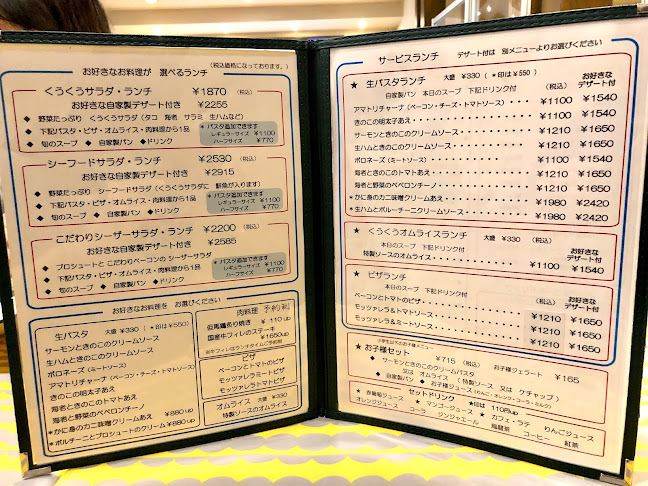 お好きなお料理が 選べるランチ (税込価格になっております。)
くうくうサラダ・ランチ ¥1870 (税込)
お好きな自家製デザート付き ¥2255
◆ 野菜たっぷり くうくうサラダ(タコ 海老 サラミ 生ハムなど)
◆ 下記パスタ・ピザ・オムライス・肉料理から1品
◆ 旬のスープ ◆ 自家製パン ◆ドリンク
* パスタ追加できます
レギュラーサイズ ¥1100
ハーフサイズ ¥770
シーフードサラダ・ランチ ¥2530 (税込)
お好きな自家製デザート付き ¥2915
◆ 野菜たっぷり シーフードサラダ(くうくうサラダに 鮮魚が入ります)
◆ 下記パスタ・ピザ・オムライス・肉料理から1品
◆ 旬のスープ ◆ 自家製パン ◆ドリンク
* パスタ追加できます
レギュラーサイズ ¥1100
ハーフサイズ ¥770
こだわりシーザーサラダ・ランチ ¥2200 (税込)
お好きな自家製デザート付き ¥2585
◆ プロシュートと こだわりベーコンの シーザーサラダ
◆ 下記パスタ・ピザ・オムライス・肉料理から1品
◆ 旬のスープ ◆ 自家製パン ◆ドリンク
* パスタ追加できます
レギュラーサイズ ¥1100
ハーフサイズ ¥770
お好きなお料理を お選びください
生パスタ 大盛 ¥330 (*印は¥550)
サーモンときのこのクリームソース
生ハムときのこのクリームソース
ポロネーズ(ミートソース)
アマトリチャーナ(ベーコン・チーズ・トマトソース)
きのこの明太子あえ
海老ときのこのトマトあえ
海老と野菜のペペロンチーノ
*かに身のカニ味噌クリームあえ ¥880 up
*ポルチーニとプロシュートのクリーム ¥880 up
肉料理 予約制
但馬鶏炙り焼き ¥110 up
国産牛フィレのステーキ ¥1650up
ピザ
ベーコンとトマトのピザ
モッツァレラミートピザ
モッツァレラトマトピザ
オムライス 大盛 ¥330
特製ソースのオムライス
サービスランチ デザート付は 別メニューよりお選びください
★ 生パスタランチ 大盛 ¥330 (*印は¥550) お好きなデザート付
自家製パン 本日のスープ 下記ドリンク付 (税込)
アマトリチャーナ(ベーコン・チーズ・トマトソース)・・・・ ¥1100 ¥1540
きのこの明太子あえ・・・・・・・・ ¥1100 ¥1540
サーモンときのこのクリームソース・・・・・・・ ¥1210 ¥1650
生ハムときのこのクリームソース・・・・・・・ ¥1210 ¥1650
ポロネーズ(ミートソース)・・・・・・・ ¥1100 ¥1540
海老ときのこのトマトあえ・・・・・・・ ¥1210 ¥1650
海老と野菜のペペロンチーノ・・・・・・・ ¥1210 ¥1650
*かに身のカニ味噌クリームあえ・・・・・・・ ¥1980 ¥2420
*生ハムとポルチーニクリームソース・・・・・・・ ¥1980 ¥2420
★ くうくうオムライスランチ 大盛 ¥330 (税込) お好きなデザート付
本日のスープ 下記ドリンク付
特製ソースのオムライス・・・・・・・ ¥1100 ¥1540
★ ピザランチ お好きなデザート付
本日のスープ 下記ドリンク付 (税込)
ベーコンとトマトのピザ・・・・・・・ ¥1210 ¥1650
モッツァレラ&トマトソース・・・・・・・ ¥1210 ¥1650
モッツァレラ&ミートソース・・・・・・・ ¥1210 ¥1650
小学生以下のお子様メニュー
★ お子様セット ¥715 (税込) お子様ジェラート ¥165
◆ サーモンときのこのクリームパスタ
又は オムライス (特製ソース 又は ケチャップ)
◆ 自家製パン ◆ お子様ジュース(りんご・オレンジ・コーラ・カルク)
★ セットドリンク *印は 110円up
赤葡萄ジュース * マンゴージュース * カフェ・ラテ りんごジュース
オレンジジュース コーラ ジンジャエール 烏龍茶 コーヒー 紅茶